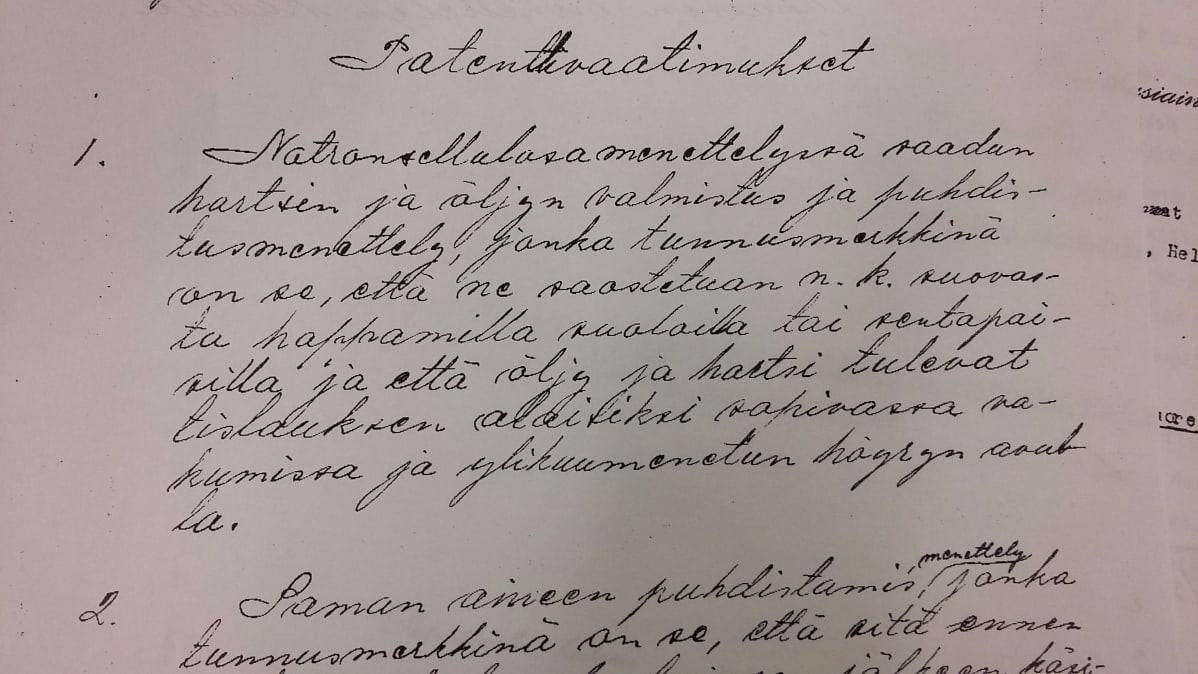 Patenttivaatimukset
1. Natronsellulosamenettelyssä saadun
hartsin ja öljyn valmistus ja puhdis-
tusmenettely, jonka tunnusmerkkinä
on se, että ne saostetaan n. k. suovas-
ta happamilla suoloilla tai sentapai-
silla ja että öljy ja hartsi tulevat
tislauksen alaisiksi sopivassa va-
kumissa ja ylikuumenetun höyryn avul-
la.
menettely
2. Saman aineen puhdistamis, jonka
tunnusmerkkinä on se, että sitä ennen
jälkeen käsi-
siain
, Hel